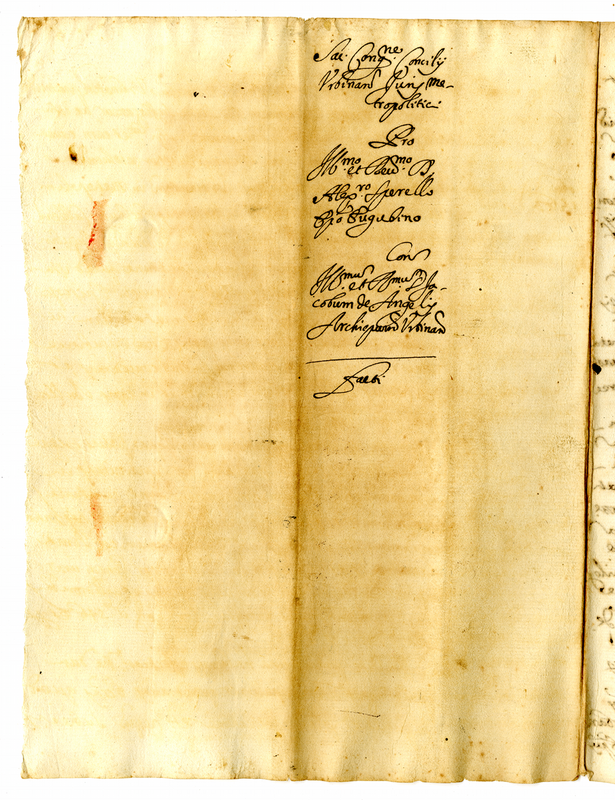 Sac. Congne Concilij
Urbinaten Jurium Me-
tropolitici
Pro
Illmo et Revmo D.
Alexro Sperello
Epo Eugubino
Con
Illmum et Rmum D. Ja-
cobum de Angelis
Archiepum Urbinaten
Facti